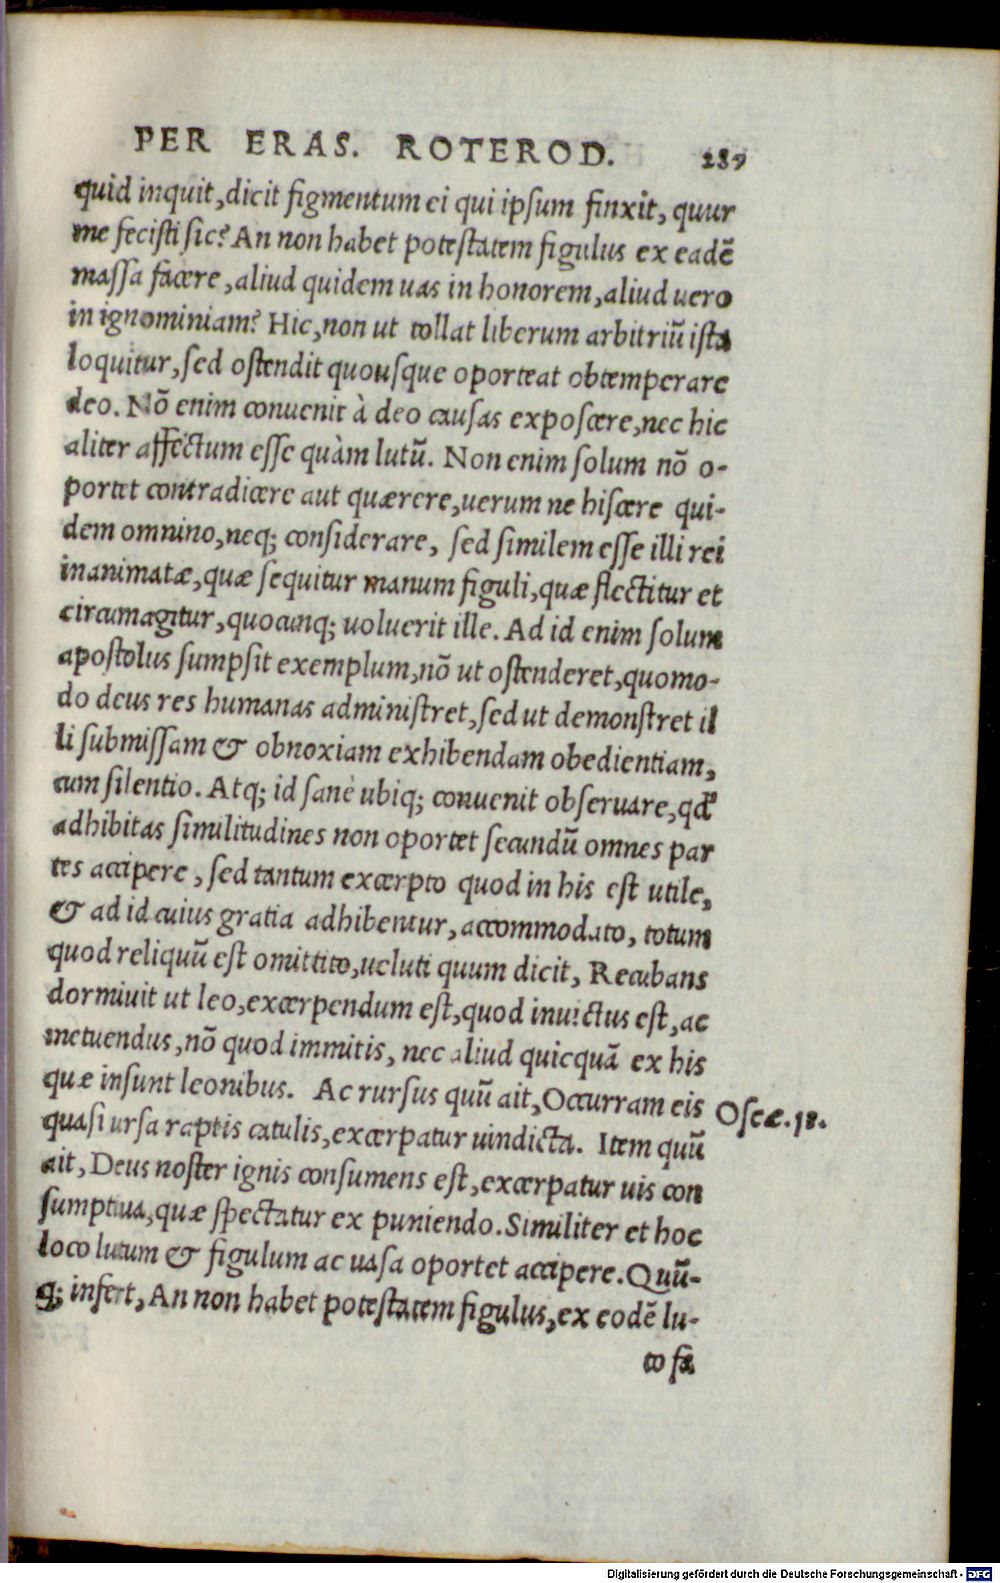 PER ERAS. ROTEROD. 289
quid inquit, dicit figmentum ei qui ipsum finxit, quur
me fecisti sic? An non habet potestatem figulus ex eadē
massa facere, aliud quidem uas in honorem, aliud uero
in ignominiam? Hic, non ut tollat liberum arbitriū ista
loquitur, sed ostendit quousque oporteat obtemperare
deo. Nō enim conuenit à deo causas exposcere, nec hic
aliter affectum esse quàm lutū. Non enim solum nō o-
portet contradicere aut quærere, uerum ne hiscere qui-
dem omnino, neq; considerare, sed similem esse illi rei
inanimatæ, quæ sequitur manum figuli, quæ flectitur et
circumagitur, quocunq; uoluerit ille. Ad id enim solum
apostolus sumpsit exemplum, nō ut ostenderet, quomo-
do deus res humanas administret, sed ut demonstret il
li submissam & obnoxiam exhibendam obedientiam,
cum silentio. Atq; id sanè ubiq; conuenit obseruare, qd'
adhibitas similitudines non oportet secundū omnes par
tes accipere, sed tantum excerpto quod in his est utile,
& ad id cuius gratia adhibentur, accommodato, totum
quod reliquū est omittito, ueluti quum dicit, Recubans
dormiuit ut leo, excerpendum est, quod inuictus est, ac
metuendus, nō quod immitis, nec aliud quicquā ex his
quæ insunt leonibus. Ac rursus quū ait, Occurram eis
Oseæ. 18.
quasi ursa raptis catulis, excerpatur uindicta. Item quū
ait, Deus noster ignis consumens est, excerpatur uis con
sumptiua, quæ spectatur ex puniendo. Similiter et hoc
loco lutum & figulum ac uasa oportet accipere. Quū-
q; infert, An non habet potestatem figulus, ex eodē lu-
to fa
Digitalisierung gefördert durch die Deutsche Forschungsgemeinschaft - DFG